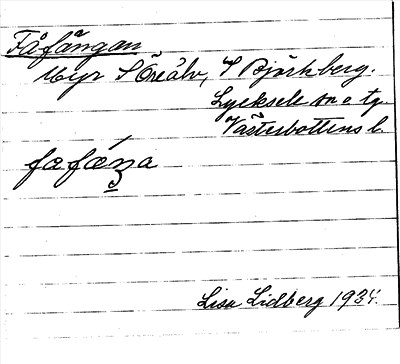 Fåfängan
Myr S Öreälv, S Björkberg.
Lycksele sn o tg.
Västerbottens l.
fæfǽŋa
Lisa Lidberg 1934.